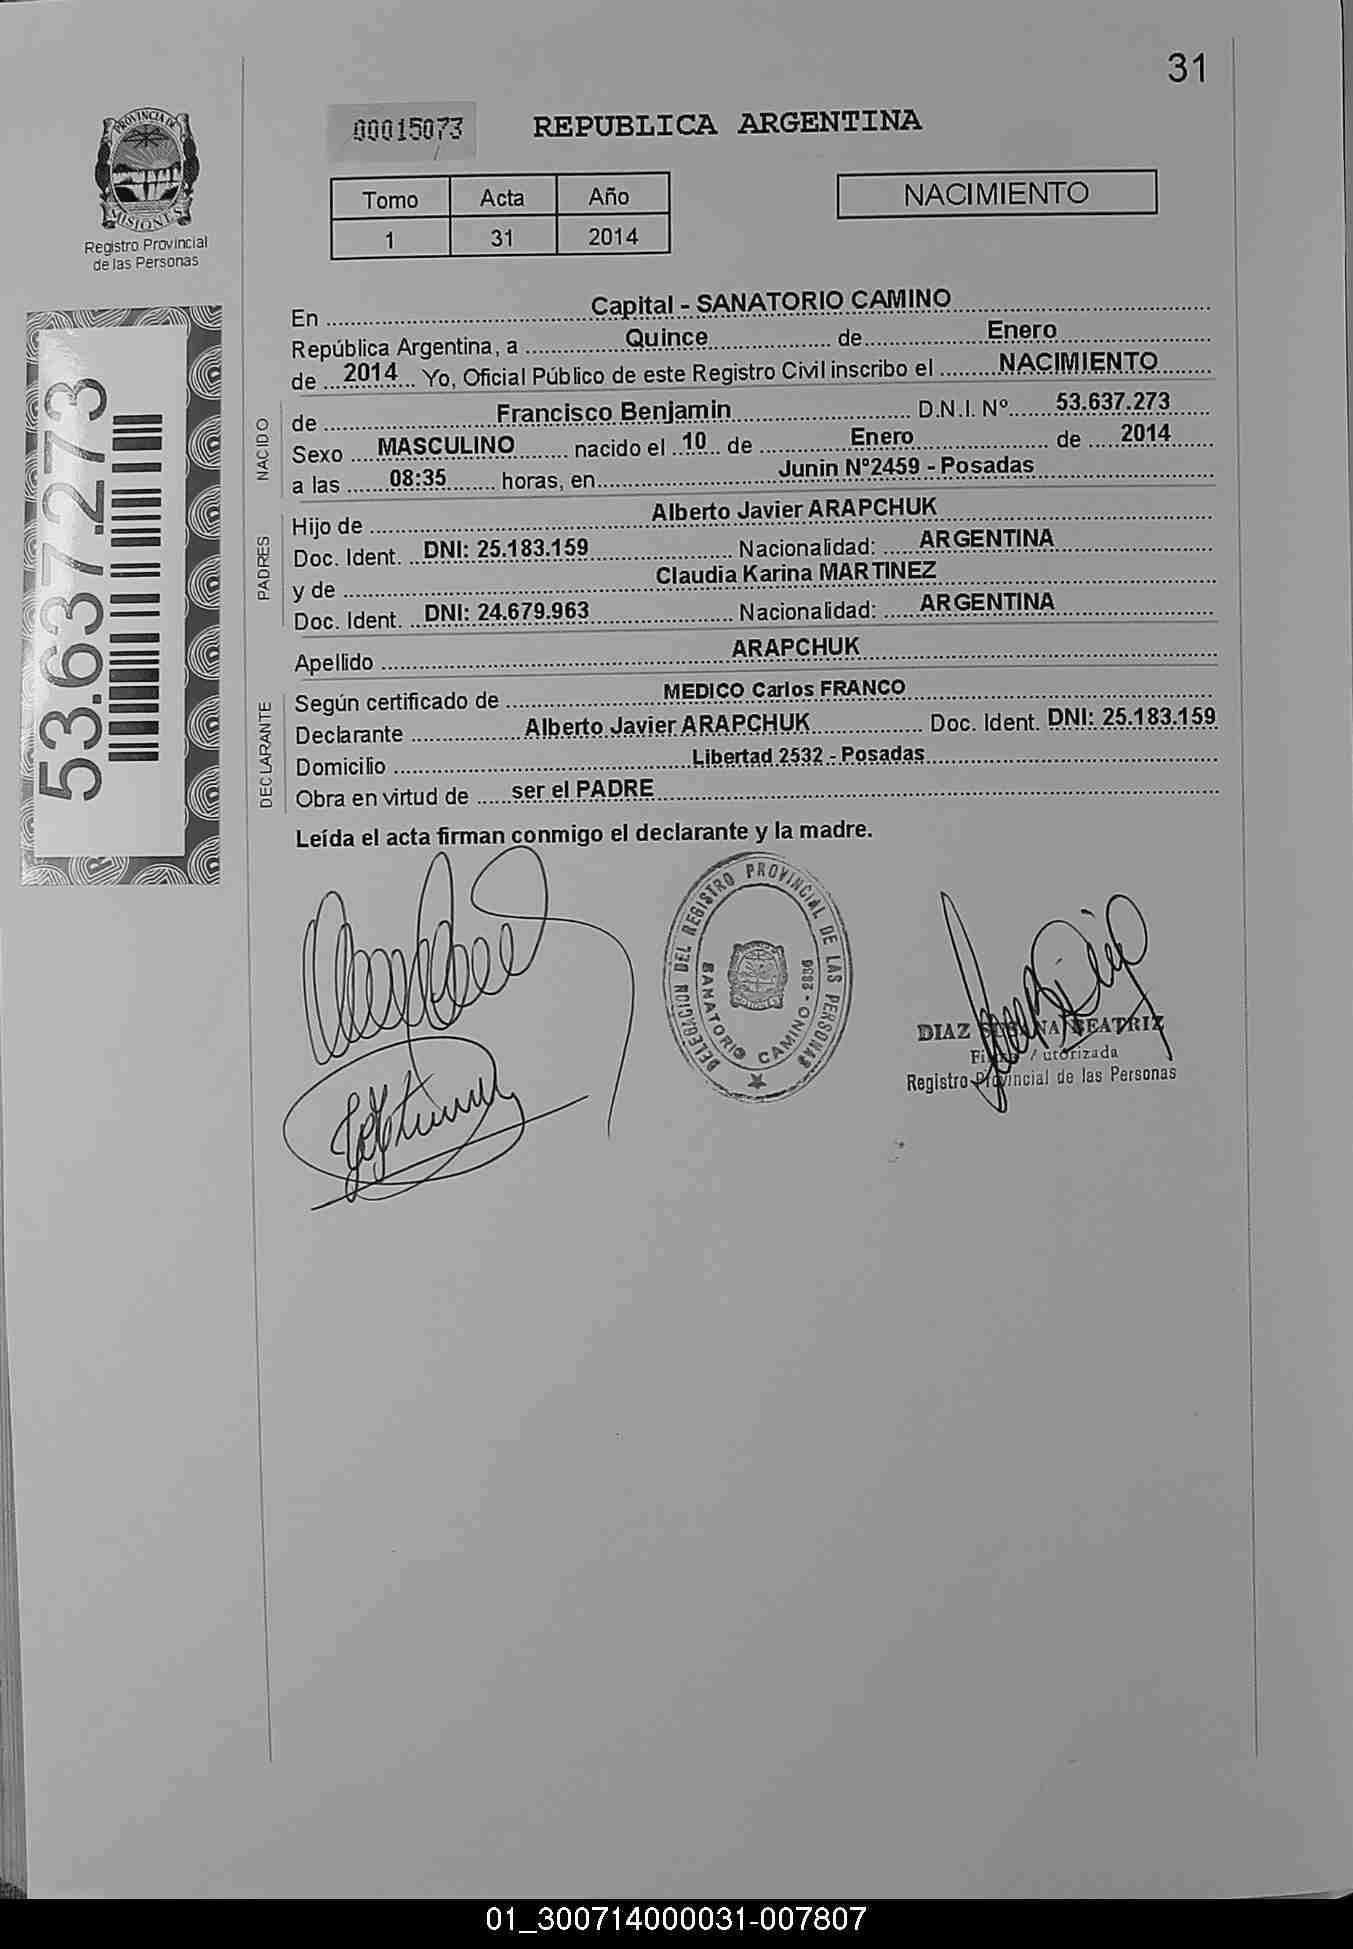 31
PROVINCIA DE
MISIONES
Registro Provincial
de las Personas
00015073
REPUBLICA ARGENTINA
Tomo Acta Año
1 31 2014
NACIMIENTO
53.637.273
En Capital - SANATORIO CAMINO
República Argentina, a Quince de Enero
de 2014 Yo, Oficial Público de este Registro Civil inscribo el NACIMIENTO
NACIDO
de Francisco Benjamin D.N.I. Nº 53.637.273
Sexo MASCULINO nacido el 10 de Enero de 2014
a las 08:35 horas, en Junin Nº2459 - Posadas
PADRES
Hijo de Alberto Javier ARAPCHUK
Doc. Ident. DNI: 25.183.159 Nacionalidad: ARGENTINA
y de Claudia Karina MARTINEZ
Doc. Ident. DNI: 24.679.963 Nacionalidad: ARGENTINA
Apellido ARAPCHUK
DECLARANTE
Según certificado de MEDICO Carlos FRANCO
Declarante Alberto Javier ARAPCHUK Doc. Ident. DNI: 25.183.159
Domicilio Libertad 2532 - Posadas
Obra en virtud de ser el PADRE
Leída el acta firman conmigo el declarante y la madre.
DELEGACION DEL REGISTRO PROVINCIAL DE LAS PERSONAS
SANATORIO CAMINO
DIAZ BEATRIZ
Registro Provincial de las Personas
01_300714000031-007807